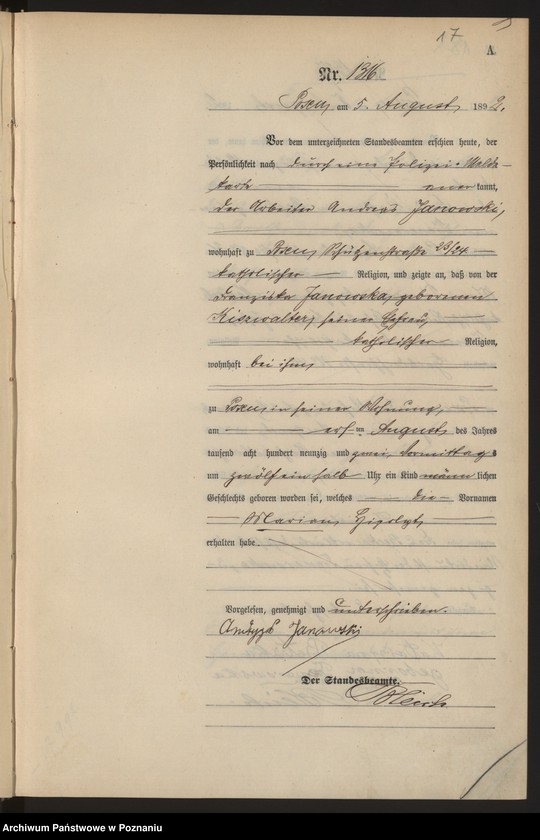 17
A.
Nr. 1316
Posen, am 5. August 1892.
Vor dem unterzeichneten Standesbeamten erschien heute, der
Persönlichkeit nach durch eine Polizei-Melde-
karte anerkannt,
der Arbeiter Andreas Janowski,
wohnhaft zu Posen, Schützenstraße 23/24
katholischer Religion, und zeigte an, daß von der
Franziska Janowska, geborenen
Kiszwalter, seiner Ehefrau,
katholischer Religion,
wohnhaft bei ihm,
zu Posen, in seiner Wohnung,
am ersten August des Jahres
tausend acht hundert neunzig und zwei, Vormittags
um zwölf ein halb Uhr ein Kind männlichen
Geschlechts geboren worden sei, welches die Vornamen
Marian, Hipolyt,
erhalten habe.
Vorgelesen, genehmigt und unterschrieben.
Janowski
Der Standesbeamte.
Archiwum Państwowe w Poznaniu